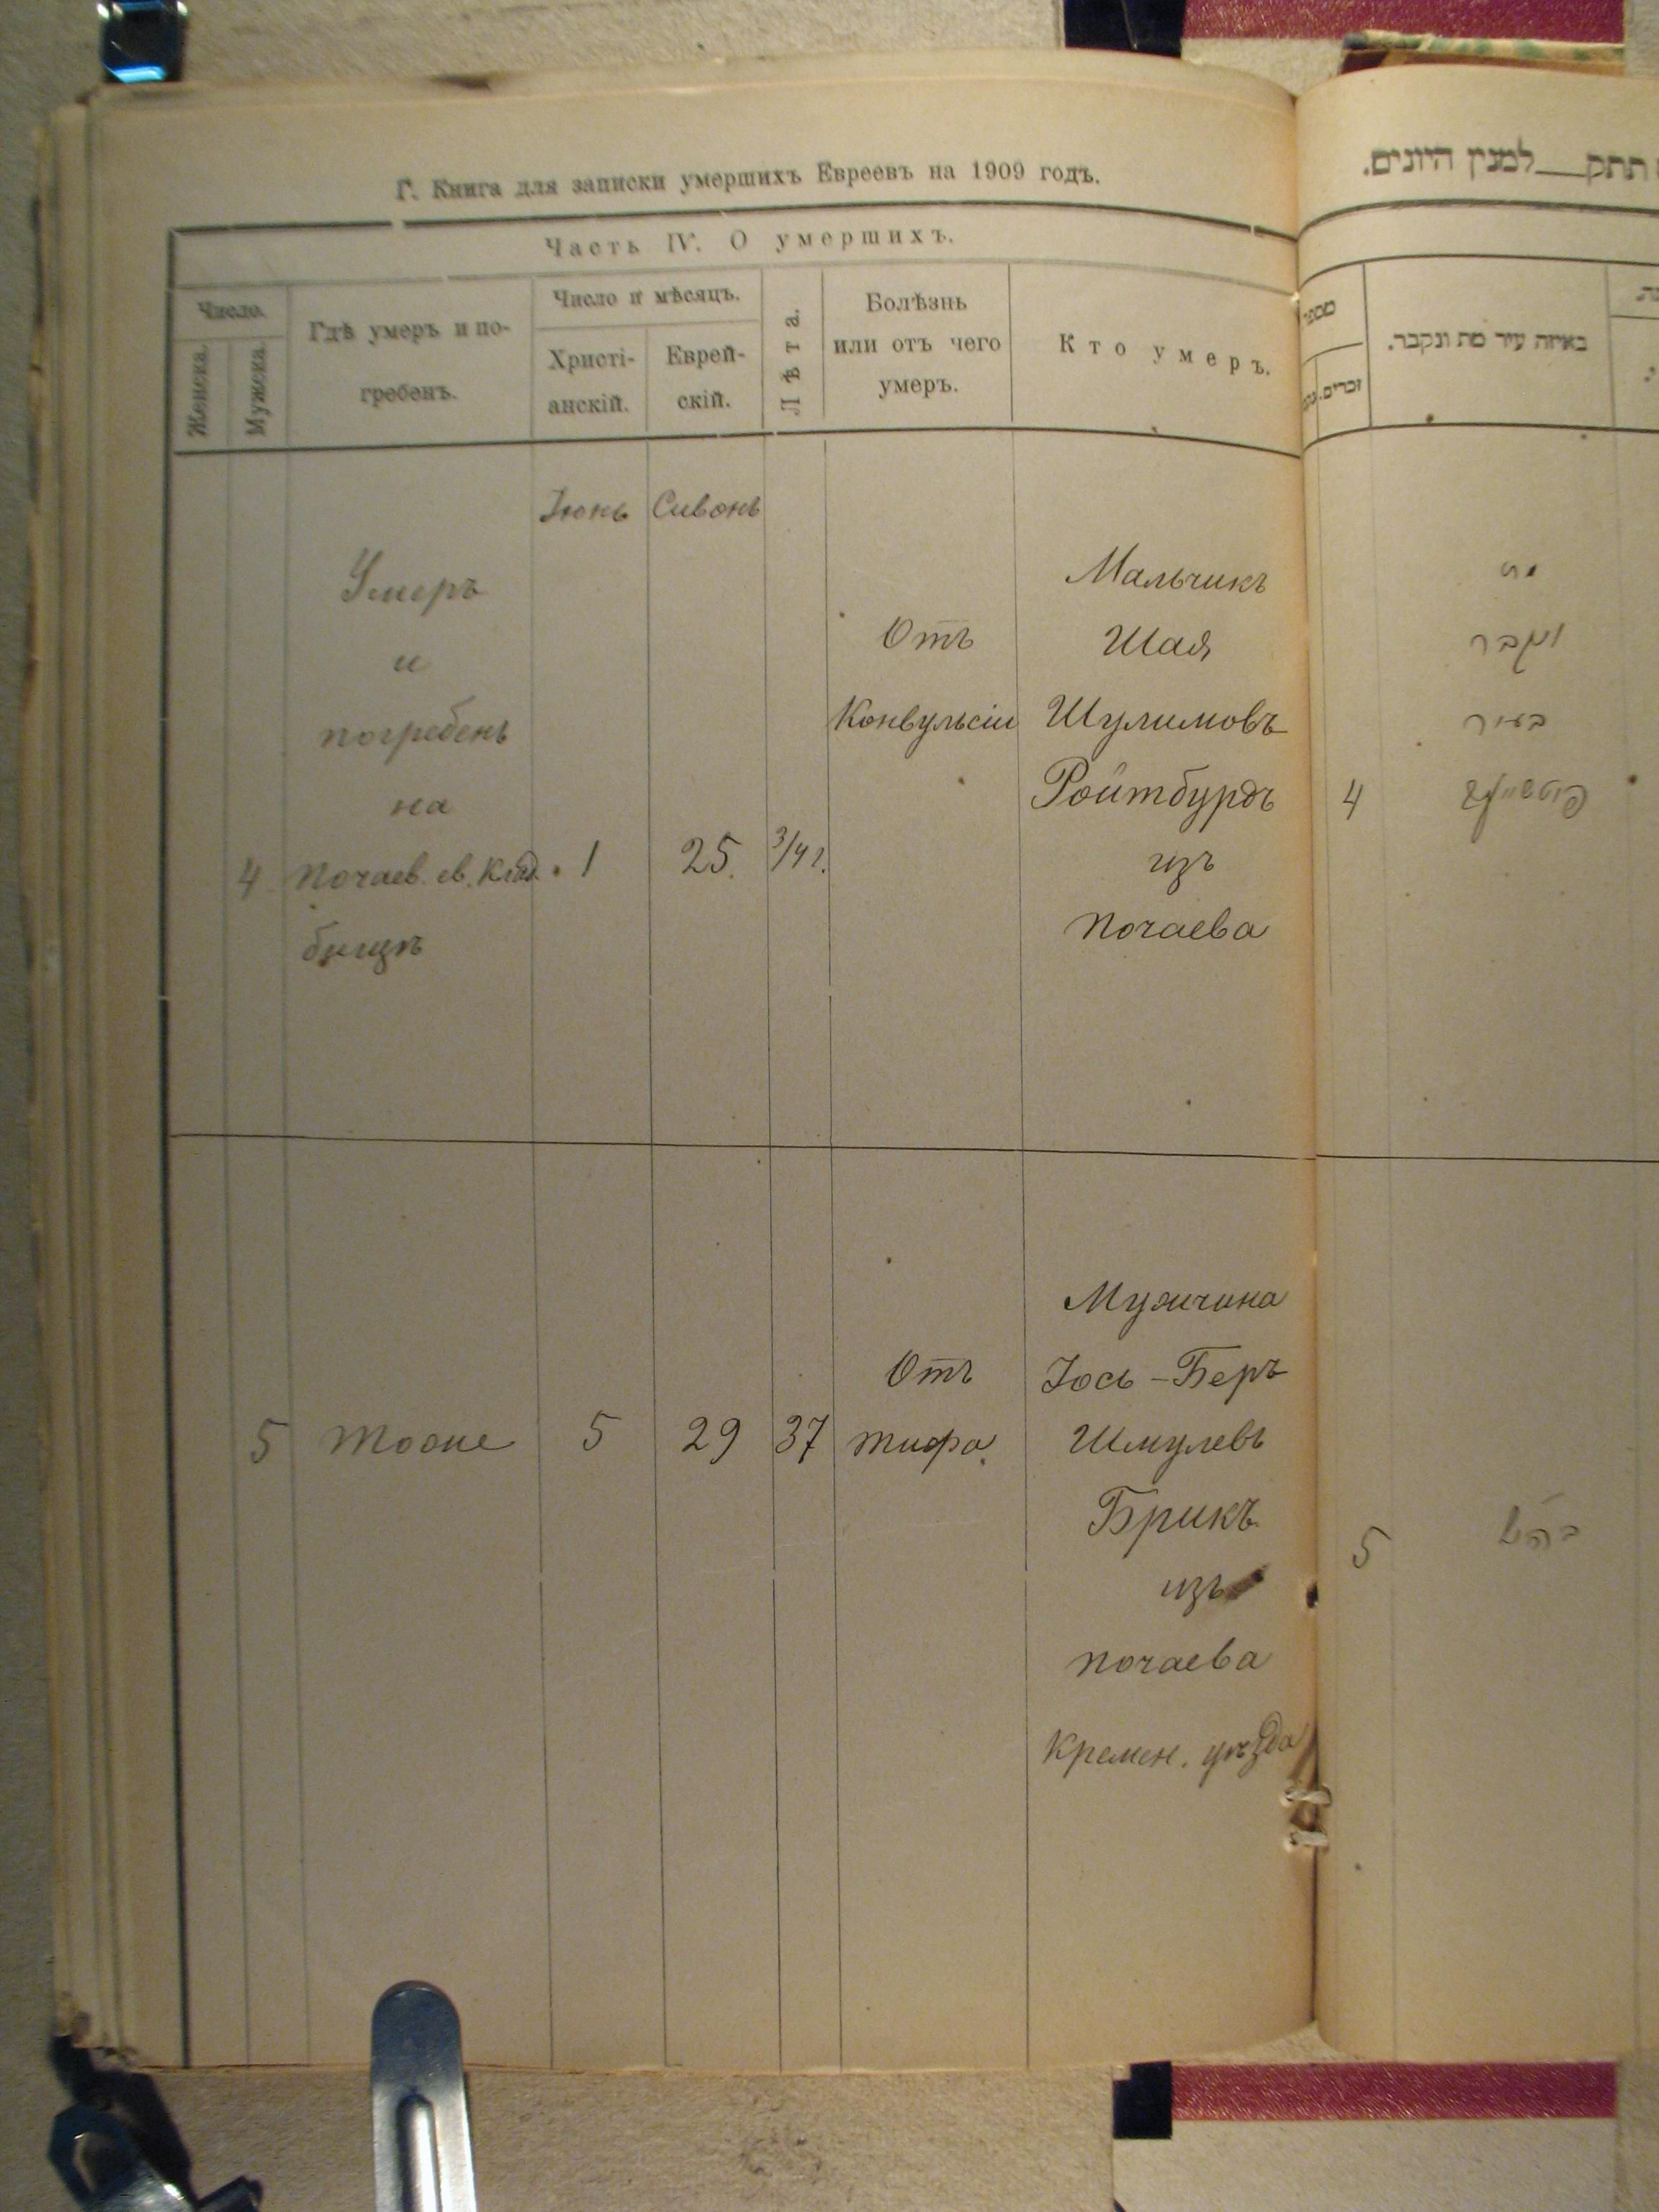 Г. Книга для записки умершихъ Евреевъ на 1909 годъ.
Часть IV. О умершихъ.
Число.
Женска.
Мужска.
Гдѣ умеръ и по-
гребенъ.
Число и мѣсяцъ.
Христі-
анскій.
Еврей-
скій.
Лѣта.
Болѣзнь
или отъ чего
умеръ.
Кто умеръ.
Іюнь Сивонь
Умеръ
и
погребенъ
на
4 Почаев. ев. клад. 1 25. 3/4 г.
бищѣ
Отъ
Конвульсіи
Мальчикъ
Шая
Шулимовъ
Ройтбурдъ
изъ
Почаева
5 тоже 5 29 37
Отъ
тифа.
Мужчина
Іось-Беръ
Шмулевъ
Брикъ
изъ
Почаева
Кремен. уѣзда
תתק למנין היונים.
מספר
זכרים.
באיזה עיר מת ונקבר.
מת
ונקבר
בעיר
4
5